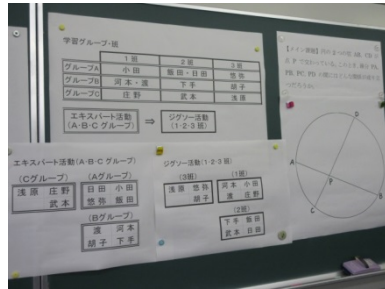 学習グループ・班
1班 2班 3班
グループA 小田 飯田・日田 悠弥
グループB 河本・渡 下手 胡子
グループC 庄野 武本 浅原
エキスパート活動
(A・B・Cグループ)
⇒
ジグソー活動
(1・2・3班)
エキスパート活動(A・B・Cグループ)
(Cグループ)
浅原 庄野
武本
(Aグループ)
日田 小田
悠弥 飯田
(Bグループ)
渡 河本
胡子 下手
ジグソー活動(1・2・3班)
(3班)
浅原 悠弥
胡子
(1班)
河本 小田
渡 庄野
(2班)
下手 飯田
武本 日田
D
A
P
B
C